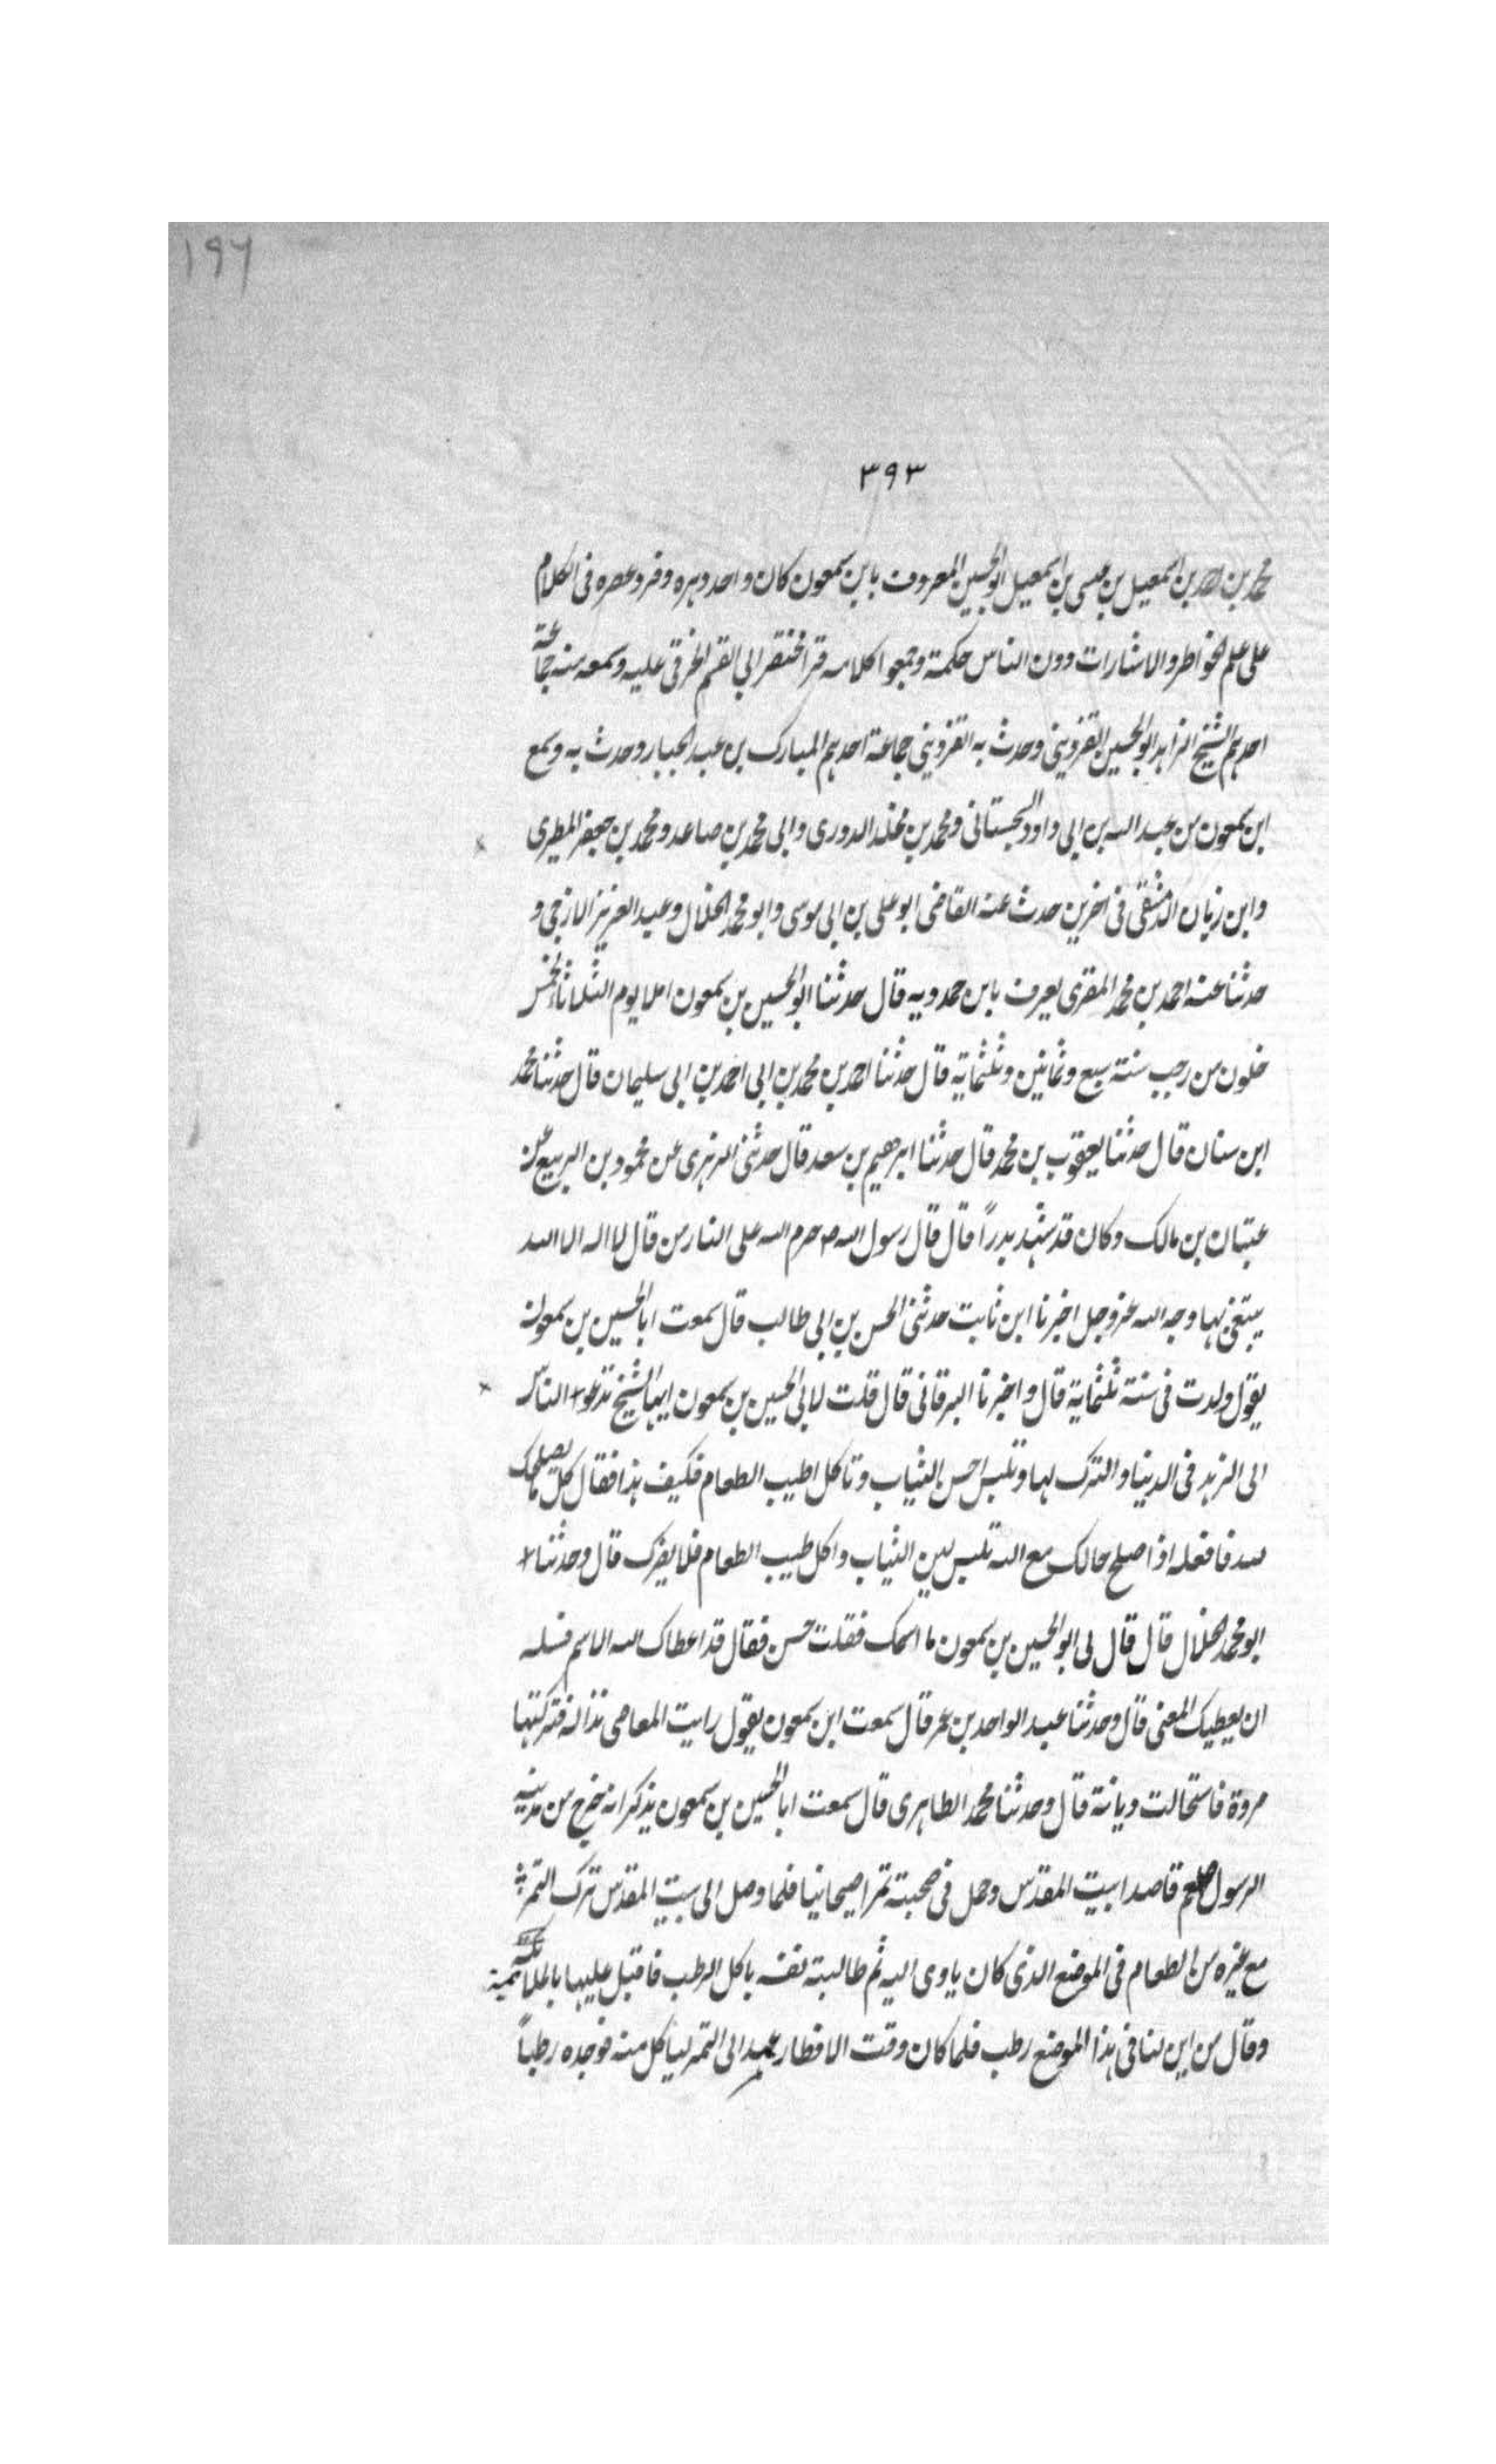 ١٩٦
٣٩٣
محمد بن احمد بن اسمعيل بن عيسى بن اسمعيل ابو الحسين المعروف بابن سمعون كان واحد دهره وفرد عصره فى الكلام
على علم الخواطر والاشارات ودون الناس حكمة وجمعوا كلامه قرا مختصر ابي القسم الخرقى عليه وسمعه منه جماعة
احدهم الشيخ الزاهد ابو الحسين القزوينى وحدث به القزوينى جماعة احدهم المبارك بن عبد الجبار وحدث به وسمع
ابن سمعون من عبد الله بن ابى داود السجستانى ومحمد بن مخلد الدورى وابى محمد بن صاعد ومحمد بن جعفر المطيرى
وابن زبان الدمشقى فى اخرين حدث عنه القاضى ابو على بن ابى موسى وابو محمد الخلال وعبد العزيز الازجى و
حدثنا عنه احمد بن محمد المقرى يعرف بابن حمدويه قال حدثنا ابو الحسين بن سمعون املا يوم الثلاثاء لخمس
خلون من رجب سنة سبع وثمانين وثلثماية قال حدثنا احمد بن محمد بن ابى احمد بن ابى سليمان قال حدثنا محمد
ابن سنان قال حدثنا يعقوب بن محمد قال حدثنا ابرهيم بن سعد قال حدثنى الزهرى عن محمود بن الربيع عن
عتبان بن مالك وكان قد شهد بدراً قال قال رسول الله ص حرم الله على النار من قال لا اله الا الله
يبتغى بها وجه الله عز وجل اخبرنا ابن ثابت حدثنى الحسن بن ابى طالب قال سمعت ابا الحسين بن سمعون
يقول ولدت فى سنة ثلثماية قال واخبرنا البرقانى قال قلت لابى الحسين بن سمعون ايها الشيخ تدعوا الناس
الى الزهد فى الدينا والترك لها وتلبس احسن الثياب وتاكل اطيب الطعام فكيف هذا فقال كل ما يصلحك
لله فافعله اذا صلح حالك مع الله تلبس لين الثياب واكل طيب الطعام فلا يضرك قال وحدثنا
ابو محمد الخلال قال قال لى ابو الحسين بن سمعون ما اسمك فقلت حسن فقال قد اعطاك الله الاسم فسله
ان يعطيك المعنى قال وحدثنا عبد الواحد بن عمر قال سمعت ابن سمعون يقول رايت المعاصى نذالة فتركتها
مروة فاستحالت ديانة قال وحدثنا محمد الطاهرى قال سمعت ابا الحسين بن سمعون يذكر انه خرج من مدينة
الرسول صلعم قاصدا بيت المقدس وحمل فى صحبته تمرا صيحانيا فلما وصل الى بيت المقدس ترك التمر
مع غيره من الطعام فى الموضع الذى كان ياوى اليه ثم طالبته نفسه باكل الرطب فاقبل عليها بالملا
وقال من اين لنا فى هذا الموضع رطب فلما كان وقت الافطار عمد الى التمر لياكل منه فوجده رطباً